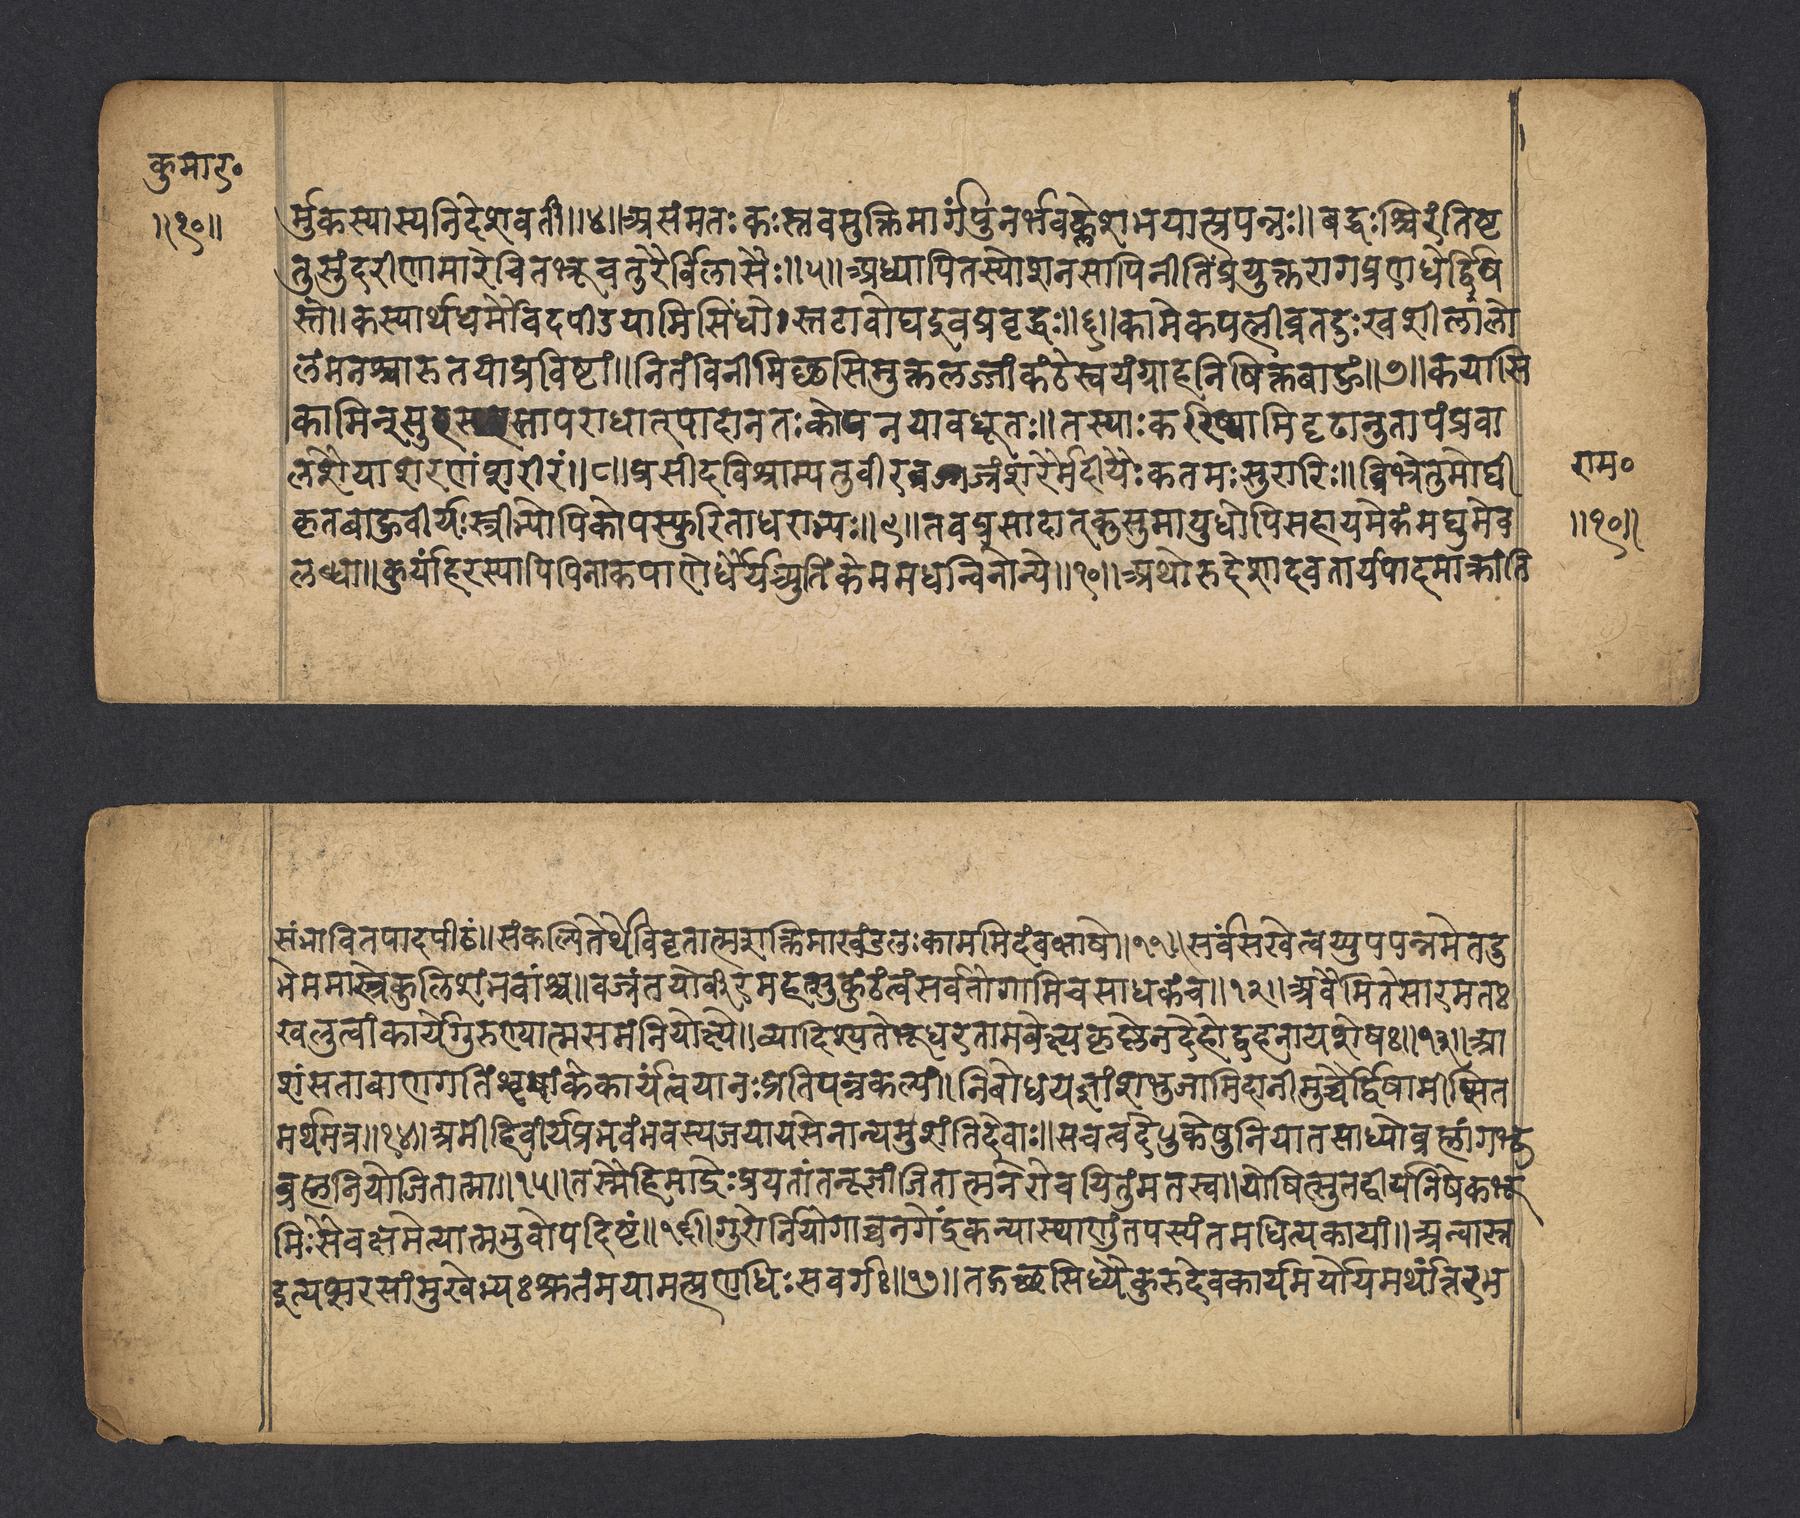 कुमार॰
॥१०॥
र्मुकस्यास्यनिदेशवर्ती॥४॥असंमतःकस्तवमुक्तिमार्गंपुनर्भवक्लेशभयात्प्रपन्नः॥बद्धश्चिरंतिष्ट
तुसुंदरीणामारेचितभ्रूचतुरैर्विलासैः॥५॥अध्यापितस्योशनसापिनीतिंप्रयुक्तरागप्रणिधेर्द्विष
स्ते॥कस्यार्थधर्मोवदपीडयामिसिंधोस्तटावोघइवप्रवृद्धः॥६॥कामेकपत्नीव्रतदुःखशीलांलो
लंमनश्चारुतयाप्रविष्टां॥नितंविनीमिच्छसिमुक्तलज्जांकंठेस्वयंग्राहनिषिक्तबाहुं॥७॥कयासि
कामिन्सुरतापराधात्पादानतःकोपनयावधूतः॥तस्याःकरिष्यामिदृढानुतापंप्रवा
लशैयाशरणंशरीरं॥८॥प्रसीदविश्राम्यतुवीरवज्रंशरैर्मदीयैःकतमःसुरारिः॥बिभेतुमोघी
कृतबाहुवीर्यःस्त्रीभ्योपिकोपस्फुरिताधराभ्यः॥९॥तवप्रसादात्कुसुमायुधोपिसहायमेकंमधुमेव
लब्धा॥कुर्यांहरस्यापिपिनाकपाणेर्धैर्यच्युतिंकेममधन्विनोन्ये॥१०॥अथोरुदेशादवतार्यपादमाक्रांति
राम॰
॥१०॥
संभावितपादपीठं॥संकल्पितेर्थेविवृतात्मशक्तिमाखंडलःकाममिदंबभाषे॥११॥सर्वंसखेत्वय्युपपन्नमेतदु
भेममास्त्रेकुलिशंभवांश्च॥वज्रंतपोवीर्यमहत्सुकुंठंत्वंसर्वतोगामिचसाधकंच॥१२॥अवैमितेसारमतः
खलुत्वांकार्येगुरुण्यात्मसमंनियोक्ष्ये॥व्यादिश्यतेभूधरतामवेक्ष्यकृछ्रेनदेहोद्वहनायशेषः॥१३॥आ
शंसताबाणगतिंवृषांकेकार्यंत्वयानःप्रतिपन्नकल्पं॥निबोधयज्ञांशभुजामिदानीमुच्चैर्द्विषामीप्सित
मर्थमत्र॥१४॥अमीहिवीर्यप्रभवंभवस्यजयायसेनान्यमुशंतिदेवाः॥सचत्वदेषुक्तेषुनिपातसाध्योब्रह्मांगभू
ब्रह्मनियोजितात्मा॥१५॥तस्मैहिमाद्रेःप्रयतांतनूजांजितात्मनेरोचयितुंयतस्व॥योषित्सुतद्वीर्यनिषेकभू
मिःसैवक्षमेत्यात्मभुवोपदिष्टं॥१६॥गुरोर्नियोगाच्चनगेंद्रकन्यास्थाणुंतपस्यंतमधित्यकायां॥अन्वास्त
इत्यप्सरसांमुखेभ्यःश्रुतंमयामत्प्रणिधिःसवर्गः॥१७॥तद्गच्छसिध्यैकुरुदेवकार्यमर्थोयमर्थांतरभ